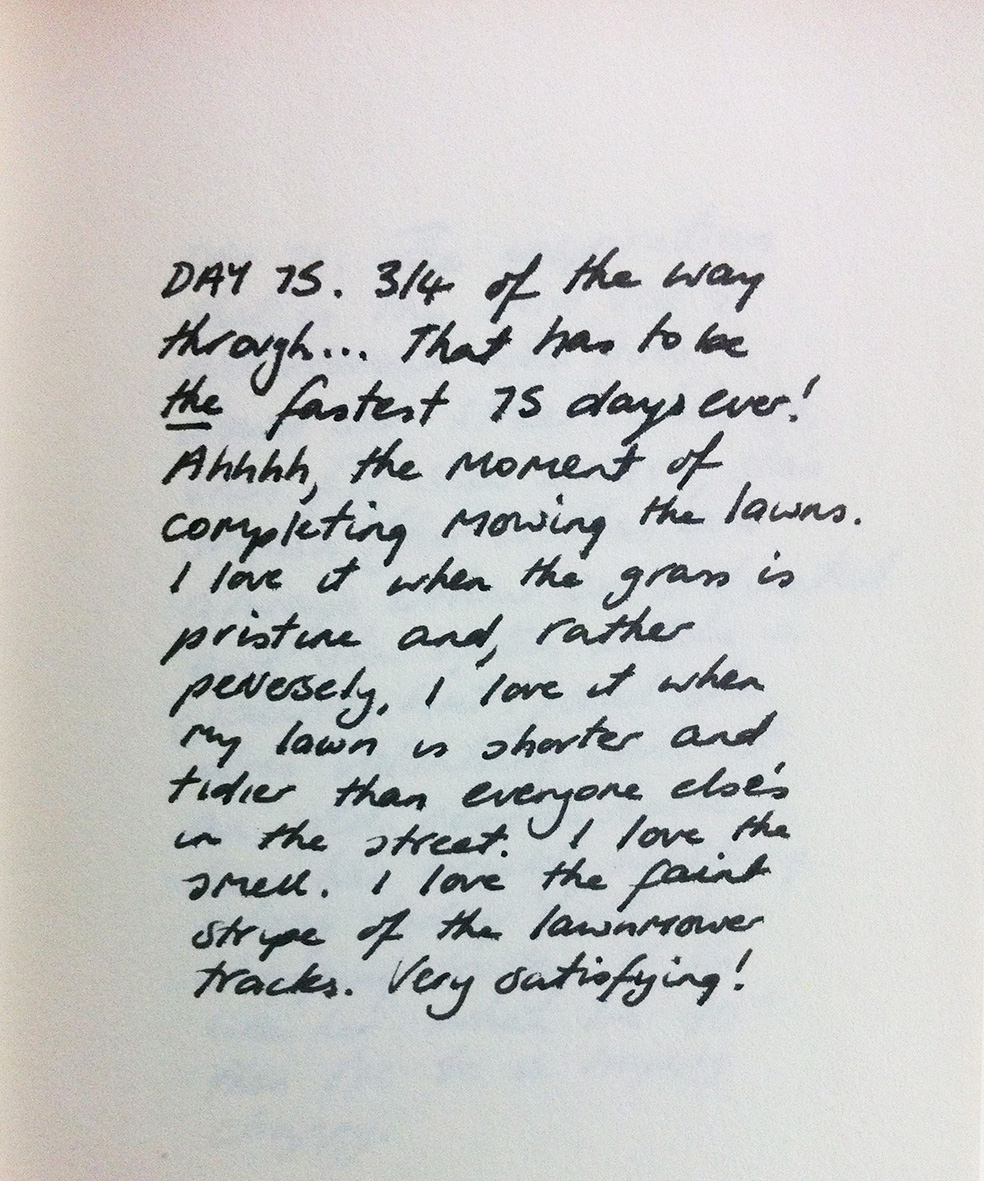 DAY 75. 3/4 of the way
through... That has to be
the fastest 75 days ever!
Ahhhh, the moment of
completing mowing the lawns.
I love it when the grass is
pristine and, rather
perversely, I love it when
my lawn is shorter and
tidier than everyone else's
in the street. I love the
smell. I love the faint
stripe of the lawnmower
tracks. Very satisfying!